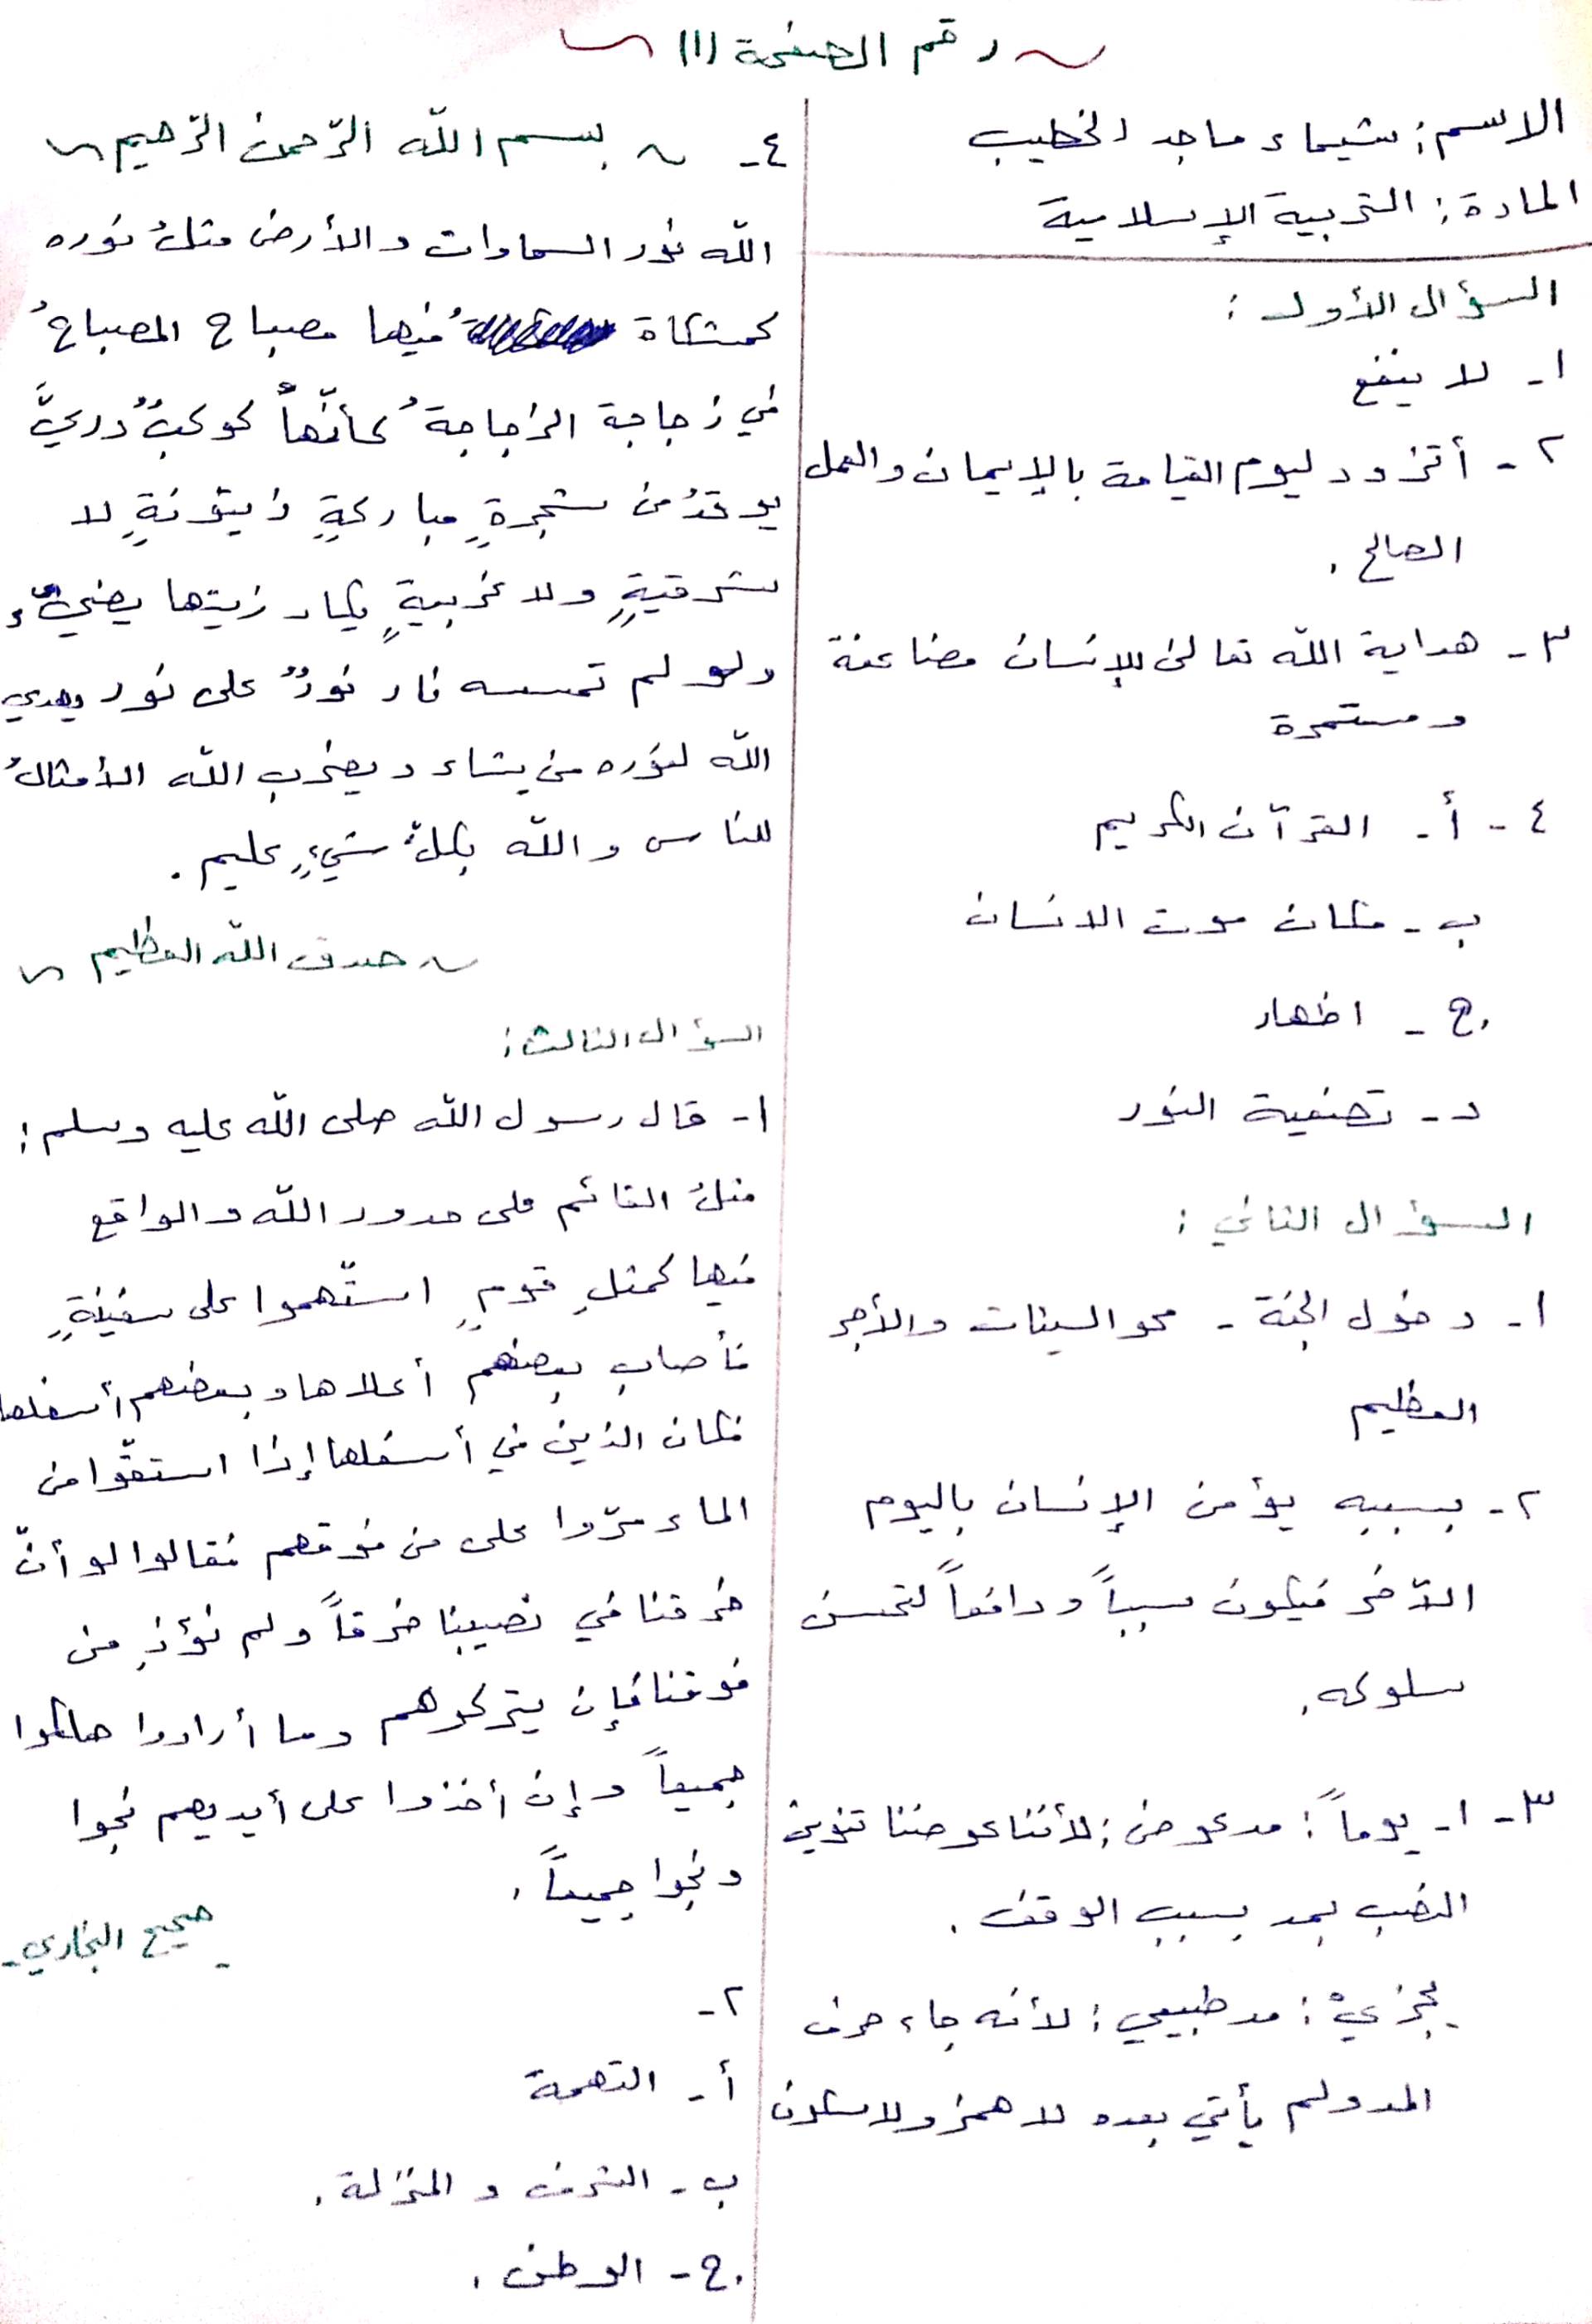 رقم الصفحة (١)
الاسم: شيماء ماجد الخطيب
المادة: التربية الإسلامية
السؤال الأول:
١- لا ينفع
٢- أتزود ليوم القيامة بالإيمان والعمل
الصالح.
٣- هداية الله تعالى للإنسان مضاعفة
ومستمرة
٤- أ- القرآن الكريم
ب- مكان موت الانسان
ج- اظهار
د- تصفية النور
السؤال الثاني:
١- دخول الجنة - محو السيئات والأجر
العظيم
٢- بسببه يؤمن الإنسان باليوم
الآخر فيكون سبباً ودافعاً لتحسن
سلوكه.
٣- ١- يوماً: مد عوض: لأننا عوضنا تنوين
النصب بمد بسبب الوقف.
يجزيْ: مد طبيعي: لأنه جاء حرف
المد ولم يأتي بعده لا همز ولا سكون
٤- بسم الله الرّحمن الرّحيم
الله نور السماوات والأرض مثلُ نوره
كمشكاة فيها مصباح المصباحُ
في زجاجة الزجاجةُ كأنّها كوكبٌ دريٌّ
يوقدُ من شجرةٍ مباركةٍ زيتونةٍ لا
شرقيةٍ ولا غربيةٍ يكاد زيتها يضيء
ولو لم تمسسه نار نورٌ على نور يهدي
الله لنوره من يشاء ويضرب الله الأمثالُ
للناس والله بكلّ شيءٍ عليم.
صدق الله العظيم
السؤال الثالث:
١- قال رسول الله صلى الله عليه وسلم:
مثلُ القائم على حدود الله والواقع
فيها كمثلِ قومٍ استّهموا على سفينةٍ
فأصاب بعضهم أعلاها وبعضهم أسفلها
فكان الذين في أسفلها إذا استقّوا من
الماء مرّوا على من فوقهم فقالوا لو أنّ
خرقنا في نصيبنا خرقاً ولم نؤذِ من
فوقنا فإن يتركوهم وما أرادوا هلكوا
جميعاً وإن أخذوا على أيديهم نجوا
ونجوا جميعاً.
- صحيح البخاري -
٢-
أ- التهمة
ب- الشرف والمنزلة.
ج- الوطن.